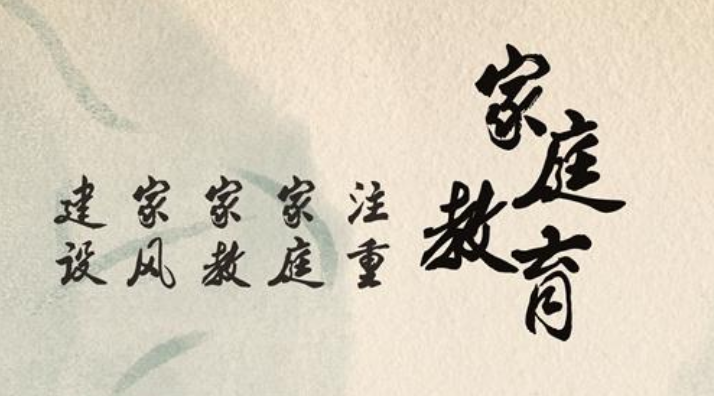 家庭教育
注重
家庭
家教
家风
建设